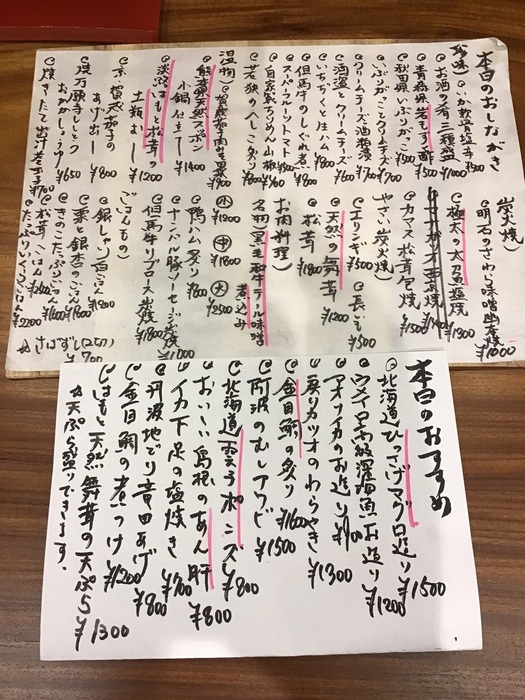 本日のおしながき
珍味)
いか軟骨塩辛 ¥500
お酒の肴 三種盛
青森県岩もずく酢 ¥500
秋田県いぶりがっこ ¥500
いぶりがっことクリームチーズ ¥700
クリームチーズ酒粕漬 ¥700
酒盗とクリームチーズ ¥600
いちぢくと生ハム ¥800
但馬牛のしぐれ煮
スーパーフルーツトマト
自家製ちりめん山椒
若狭の 一夜干し 炙り
温物)
賀茂茄子肉みそ田楽 ¥900
熊本県天然スッポン
小鍋仕立て ¥1400
淡路はもと松茸の
土瓶むし ¥1200
京 賀茂茄子の
あげ出し ¥800
焼万願寺しし唐
おかかしょうゆ ¥650
焼きたて出汁巻き玉子 ¥700
炭火焼)
明石のさわら味噌幽庵焼 ¥1000
極太の太刀魚塩焼 ¥1300
カナガシラ西京焼
カマス松茸包み焼 ¥1500
やさい炭火焼)
エリンギ ¥500
長いも ¥500
天然の舞茸 ¥1200
松茸 ¥1800
お肉料理)
名物(黒毛和牛テール味噌
煮込み
小 ¥1200
中 ¥1800
大 ¥2500
鴨ハム炙り ¥800
ナンバル豚ソーセージ炭焼 ¥1000
但馬牛リブロース炭焼 ¥1800
ごはんもの)
銀しゃり白ごはん
栗と銀杏のごはん
きのこたっぷりごはん ¥1600
松茸ごはん
たっぷりいくらごはん ¥2200
本日のおすすめ
北海道ひっさげマグロ造り ¥1500
ウスイロ高級深海魚お造り ¥1200
アオリイカのお造り
戻りカツオのわらやき ¥1300
金目鯛の炙り ¥1600
阿波のむしアワビ ¥1500
北海道雲子ポンズ ¥800
おいしい島根のあん肝 ¥800
イカ下足の塩焼き ¥700
丹波地どり竜田あげ ¥800
金目鯛の煮つけ ¥1200
はもと天然舞茸の天ぷら ¥1300
☆天ぷら盛りできます。